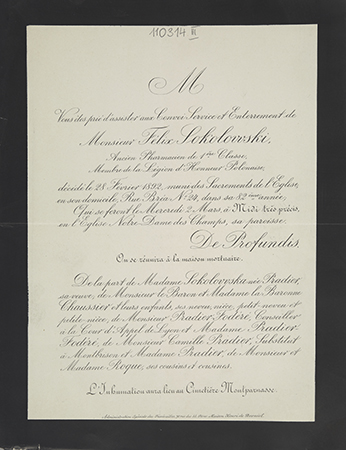 110314 III
M
Vous êtes prié d'assister aux Convoi Service et Enterrement de
Monsieur Félix Sokolovski,
Ancien Pharmacien de 1ère Classe,
Membre de la Légion d'Honneur Polonaise,
décédé le 28 Février 1892, muni des Sacrements de l'Eglise,
en son domicile, Rue Bréa No 24, dans sa 82ème année,
Qui se feront le Mercredi 2 Mars, à Midi très précis,
en l'Eglise Notre Dame des Champs, sa paroisse.
De Profundis.
On se réunira à la maison mortuaire.
De la part de Madame Sokolovska née Pradier,
sa veuve, de Monsieur le Baron et Madame la Baronne
Chaussier et leurs enfants, ses neveu, nièce, petit neveu et
petite nièce, de Monsieur Pradier Fodéré, Conseiller
à la Cour d'Appel de Lyon et Madame Pradier-
Fodéré, de Monsieur Camille Pradier, Substitut
à Montbrison et Madame Pradier, de Monsieur et
Madame Roque, ses cousins et cousines.
L'Inhumation aura lieu au Cimetière Montparnasse.